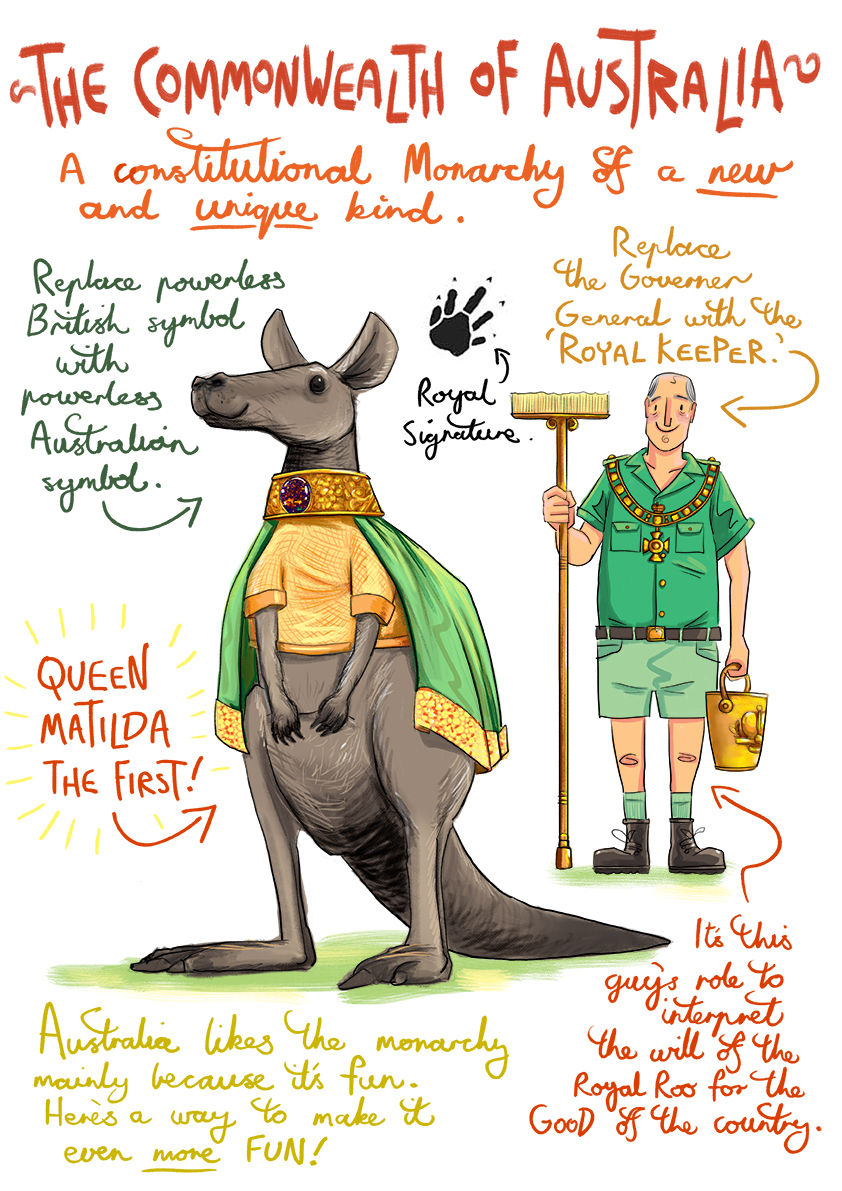 THE COMMONWEALTH OF AUSTRALIA
A constitutional Monarchy of a new
and unique kind.
Replace powerless
British symbol
with
powerless
Australian
symbol.
Royal
Signature.
Replace
the Governer
General with the
'ROYAL KEEPER.'
QUEEN
MATILDA
THE FIRST!
It's this
guy's role to
interpret
the will of the
Royal Roo for the
GOOD of the country.
Australia likes the monarchy
mainly because it's fun.
Here's a way to make it
even more FUN!